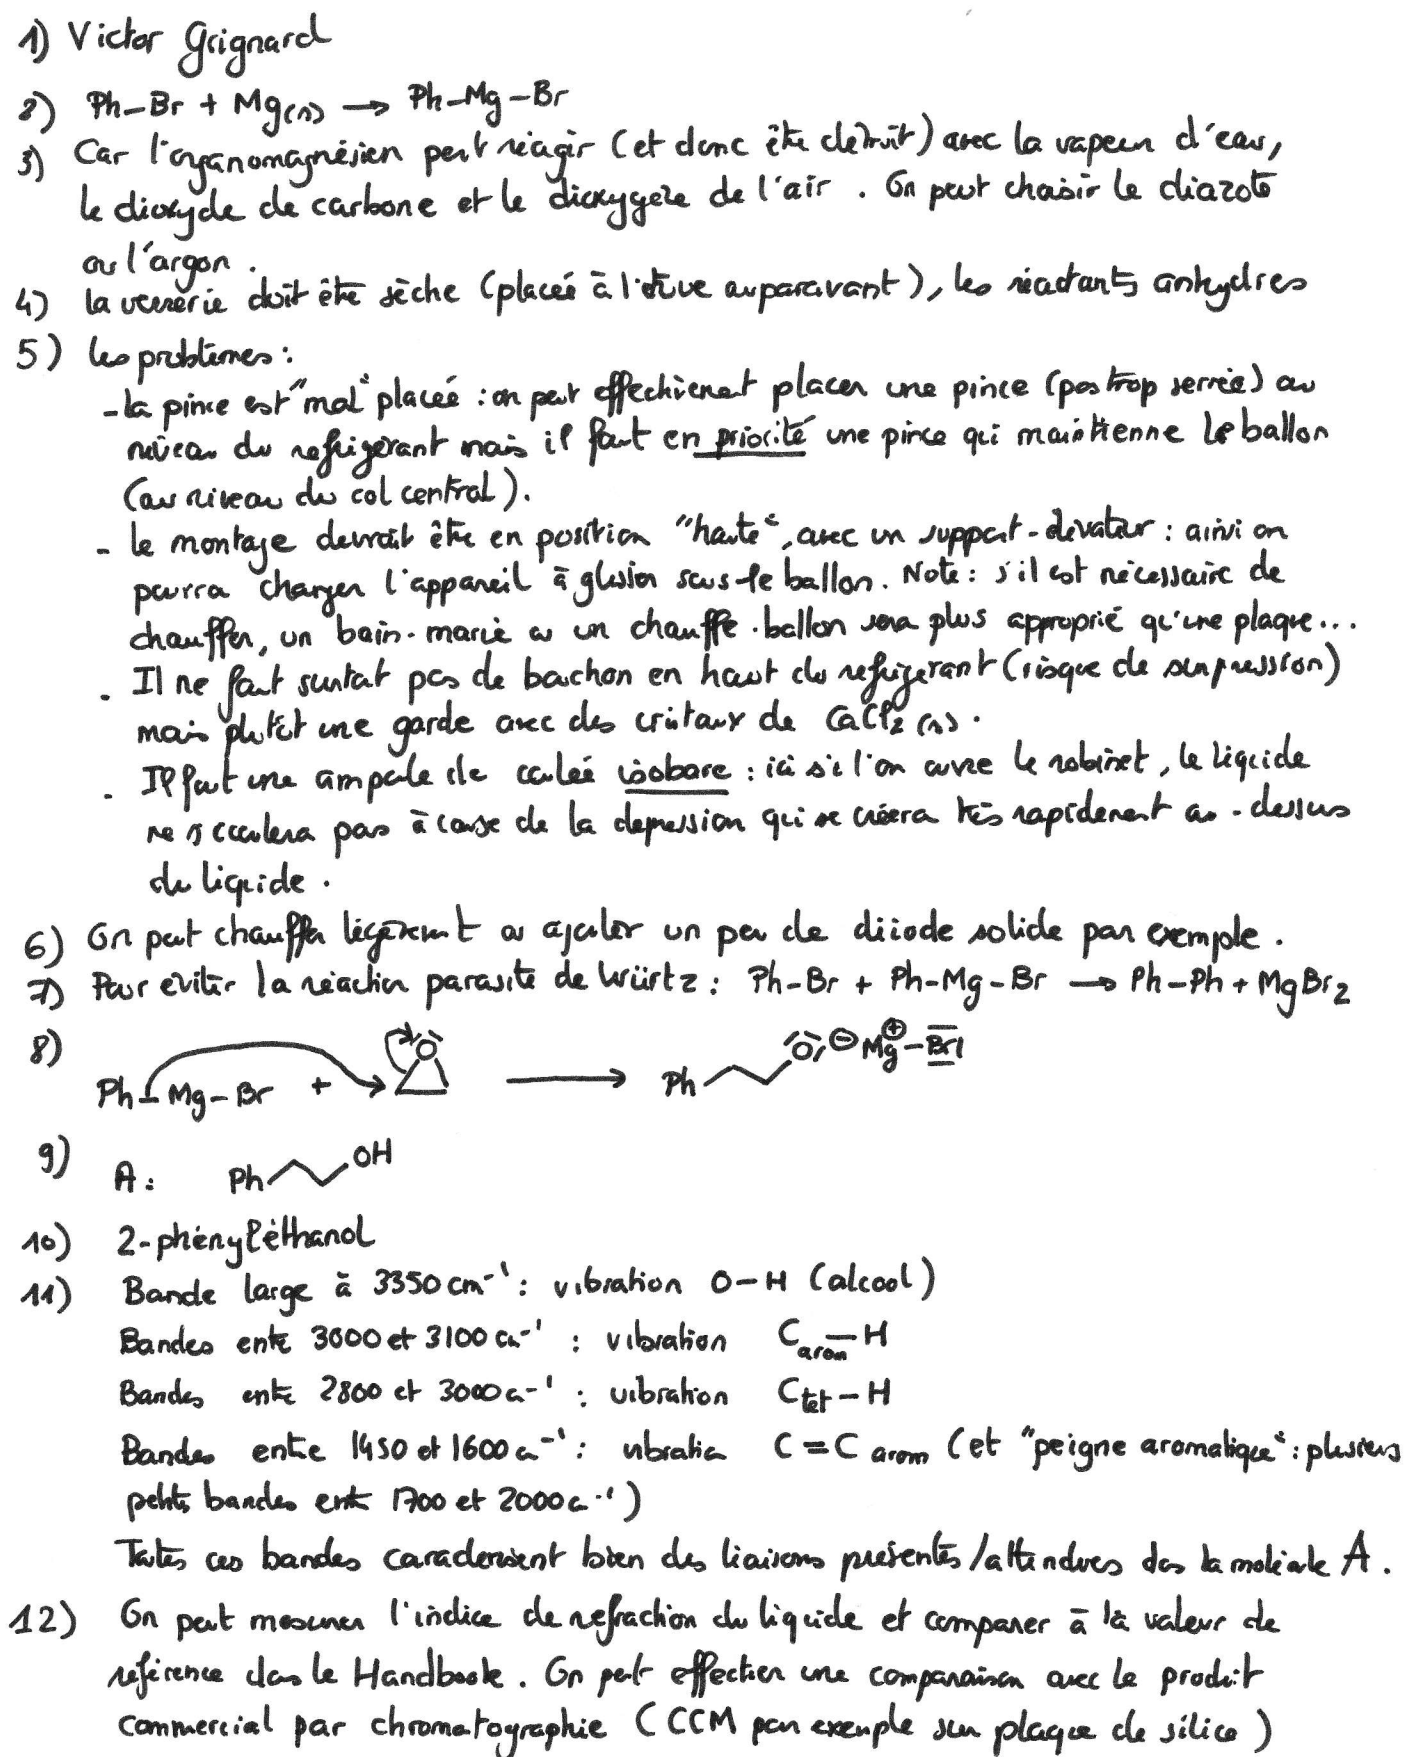 1) Victor Grignard
2) Ph-Br + Mg(s) → Ph-Mg-Br
3) Car l'organomagnésien peut réagir (et donc être détruit) avec la vapeur d'eau,
le dioxyde de carbone et le dioxygène de l'air. On peut choisir le diazote
ou l'argon.
4) la verrerie doit être sèche (placée à l'étuve auparavant), les réactants anhydres
5) les problèmes :
- la pince est "mal" placée : on peut effectivement placer une pince (pas trop serrée) au
niveau du refrigérant mais il faut en priorité une pince qui maintienne le ballon
(au niveau du col central).
- le montage devrait être en position "haute", avec un support-élévateur : ainsi on
pourra changer l'appareil à glisser sous le ballon. Note : s'il est nécessaire de
chauffer, un bain-marie ou un chauffe-ballon sera plus approprié qu'une plaque...
- Il ne faut surtout pas de bouchon en haut du refrigerant (risque de surpression)
mais plutôt une garde avec des cristaux de CaCl2 (s).
- Il faut une ampoule de coulée isobare : ici si l'on ouvre le robinet, le liquide
ne s'écoulera pas à cause de la depression qui se créera très rapidement au-dessus
du liquide.
6) On peut chauffer légèrement ou ajouter un peu de diiode solide par exemple.
7) Pour éviter la réaction parasite de Würtz : Ph-Br + Ph-Mg-Br → Ph-Ph + MgBr2
8)
Ph-Mg-Br + O → Ph O ⊖ Mg ⊕ -Br
9) A : Ph OH
10) 2-phényléthanol
11) Bande large à 3350 cm-1 : vibration O-H (alcool)
Bandes entre 3000 et 3100 cm-1 : vibration Carom-H
Bandes entre 2800 et 3000 cm-1 : vibration Ctet-H
Bandes entre 1450 et 1600 cm-1 : vibration C=C arom (et "peigne aromatique" : plusieurs
petites bandes entre 1700 et 2000 cm-1)
Toutes ces bandes caractérisent bien des liaisons présentes/attendues dans la molécule A.
12) On peut mesurer l'indice de refraction du liquide et comparer à la valeur de
référence dans le Handbook. On peut effectuer une comparaison avec le produit
commercial par chromatographie (CCM par exemple sur plaque de silice)